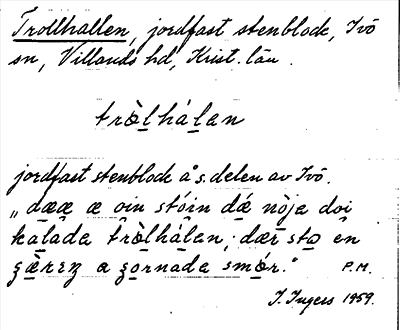 Trollhallen, jordfast stenblock, Ivö
sn, Villands hd, Krist. län.
tròlhálan
jordfast stenblock å s. delen av Ivö.
„dææ æ oin stóin dá nòja doi
kalada tròlhálan, dær sto en
gærız a gornada smór."
P.M.
I. Ingers 1959.